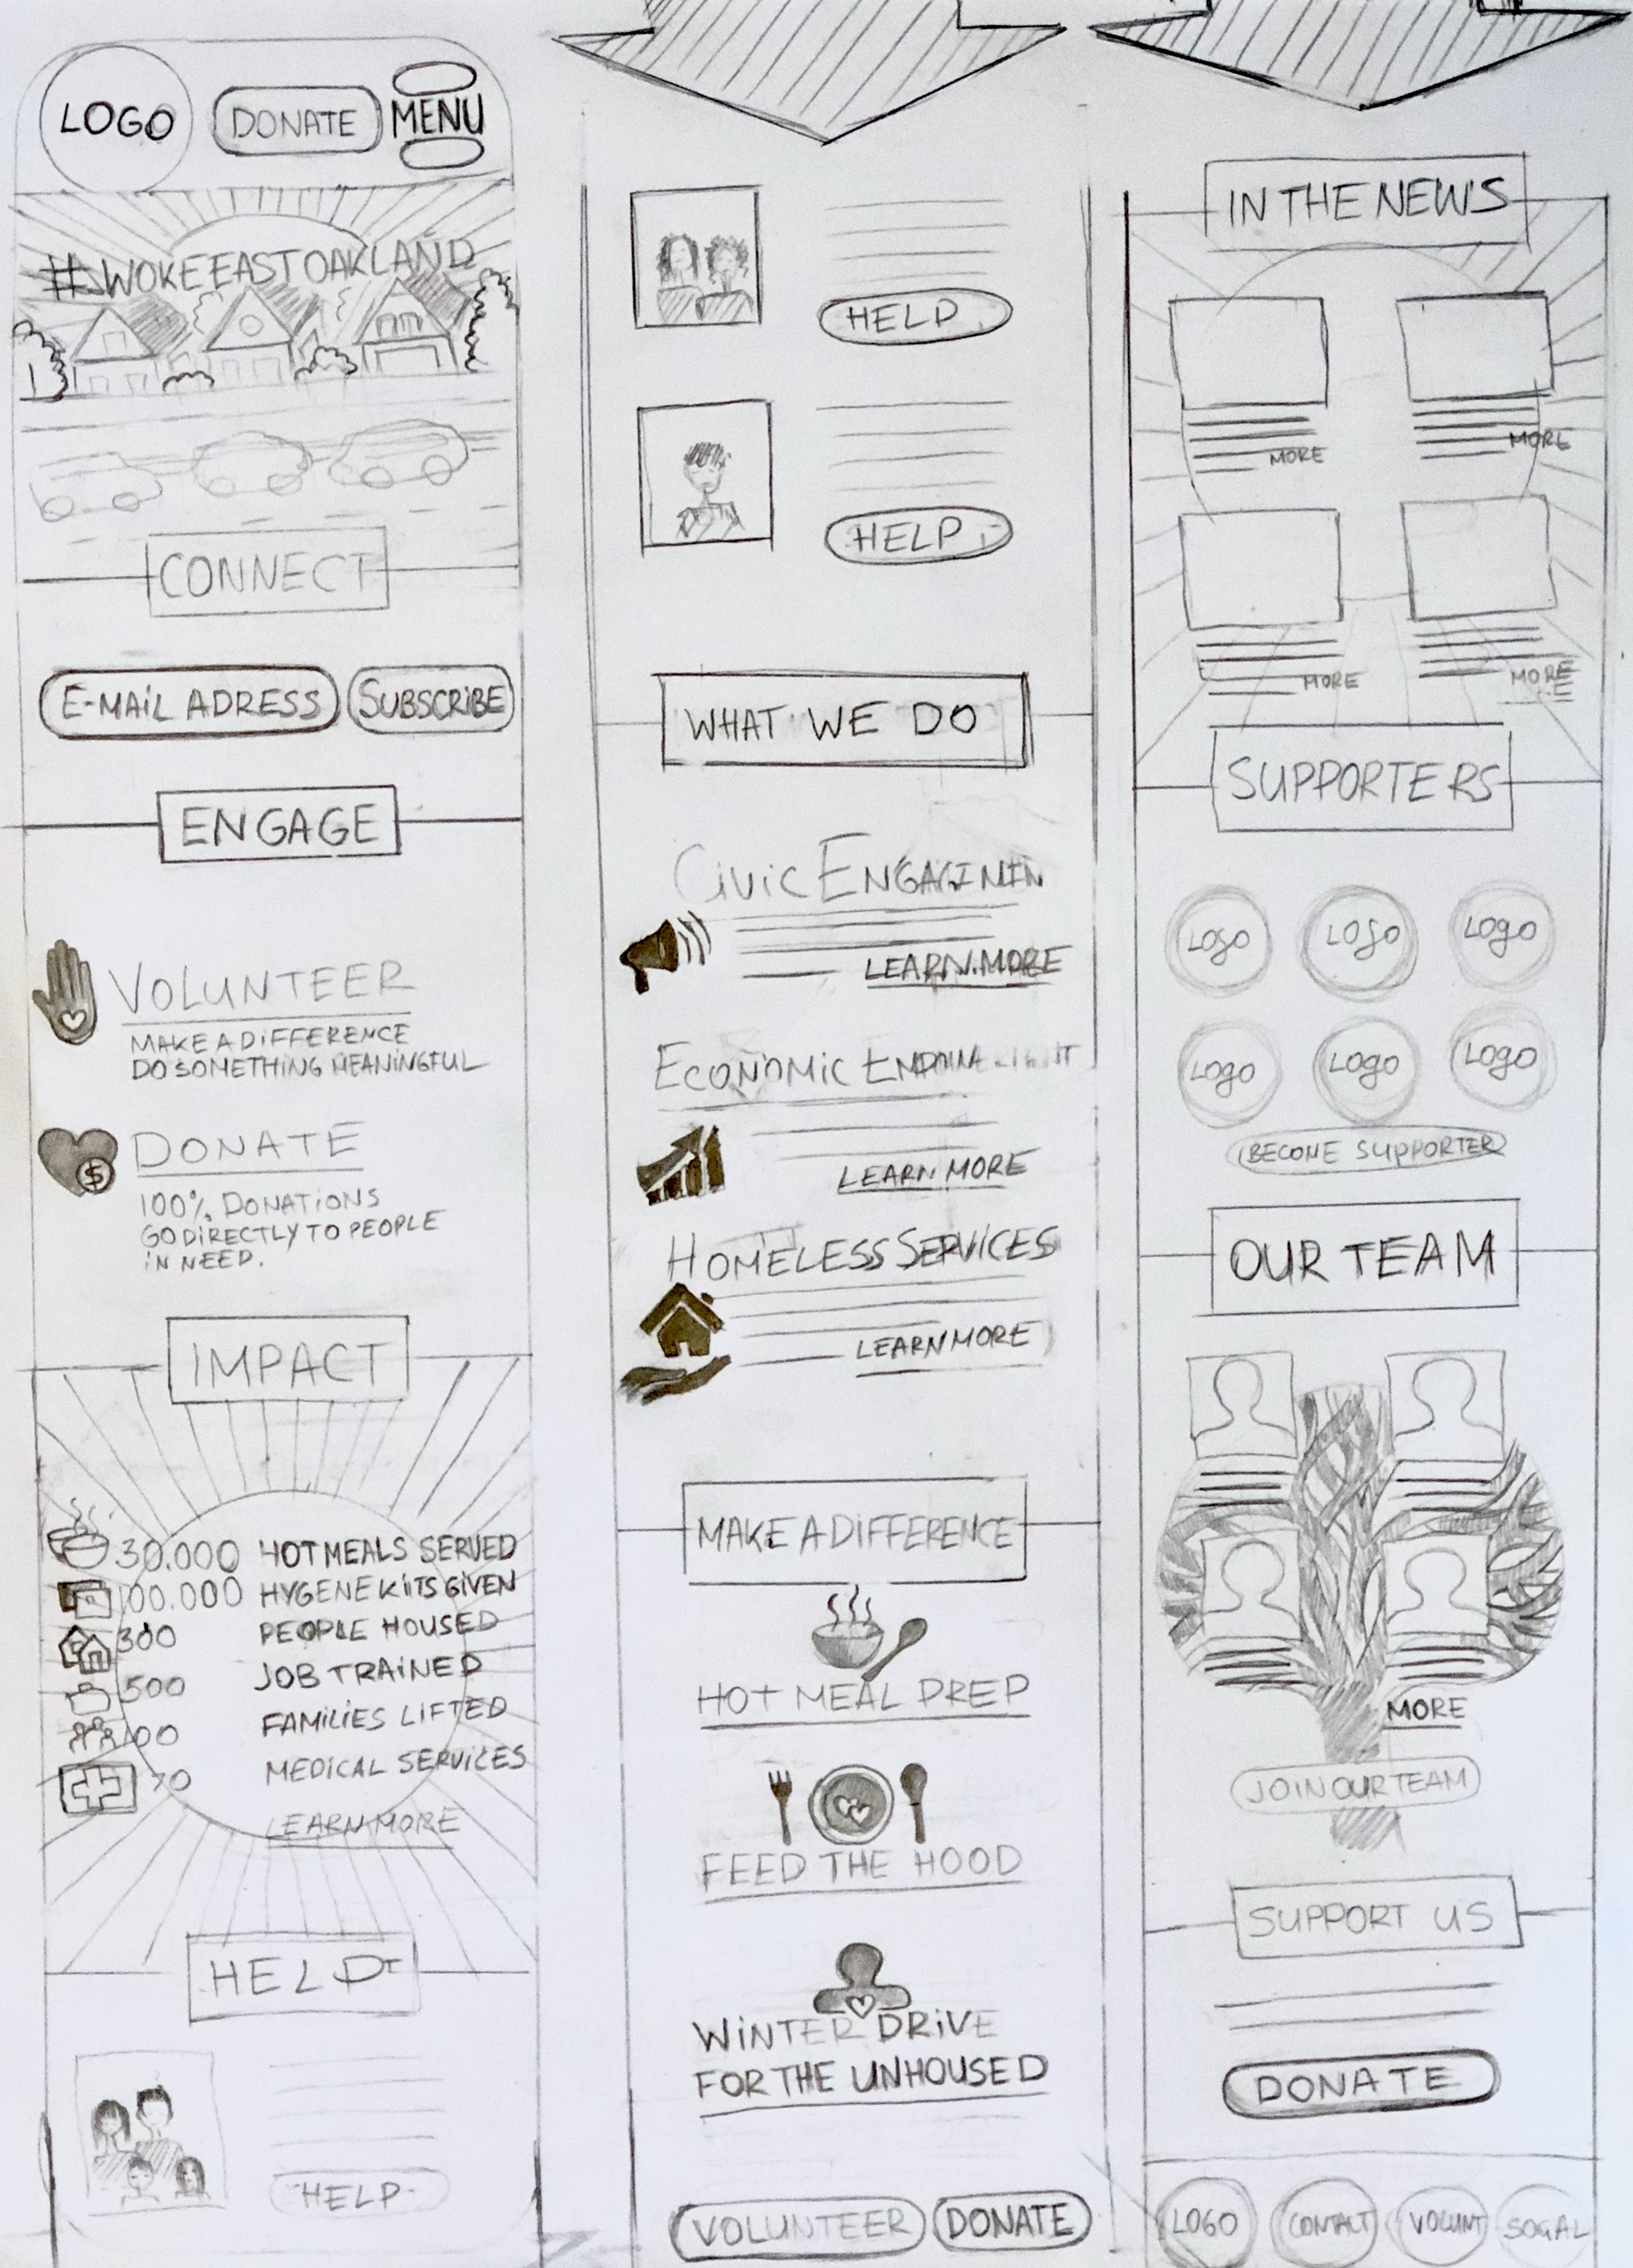 LOGO
DONATE
MENU
#WOKEEASTOAKLAND
CONNECT
E-MAIL ADRESS
SUBSCRIBE
ENGAGE
VOLUNTEER
MAKE A DIFFERENCE
DO SOMETHING MEANINGFUL
DONATE
$
100% DONATIONS
GO DIRECTLY TO PEOPLE
IN NEED.
IMPACT
30.000 HOT MEALS SERVED
100.000 HYGENE KITS GIVEN
300 PEOPLE HOUSED
500 JOB TRAINED
100 FAMILIES LIFTED
70 MEDICAL SERVICES
LEARN MORE
HELP
HELP
HELP
HELP
WHAT WE DO
CIVIC
LEARN MORE
ECONOMIC
LEARN MORE
HOMELESS SERVICES
LEARN MORE
MAKE A DIFFERENCE
HOT MEAL PREP
FEED THE HOOD
WINTER DRIVE
FOR THE UNHOUSED
VOLUNTEER
DONATE
IN THE NEWS
MORE
MORE
MORE
MORE
SUPPORTERS
LOGO
LOGO
LOGO
LOGO
LOGO
LOGO
BECOME SUPPORTER
OUR TEAM
MORE
JOIN OUR TEAM
SUPPORT US
DONATE
LOGO
CONTACT
VOLUNT
SOCIAL